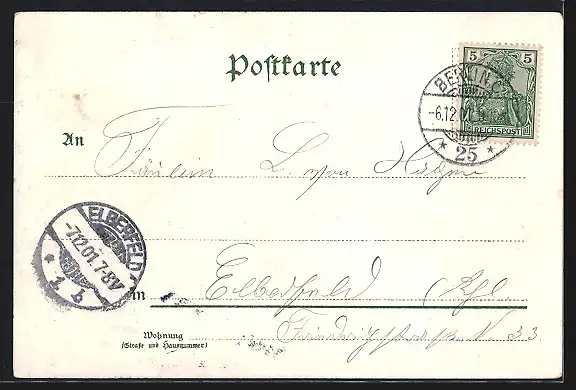 Postkarte
5 5
REICHSPOST
BERLIN C
-6.12.01
* 25 *
An Fräulein L. von Hagen
ELBERFELD
-7.12.01.7-8V
* 1 b
in Elberfeld
Wohnung
(Straße und Hausnummer)
Friedrichstraße N 33